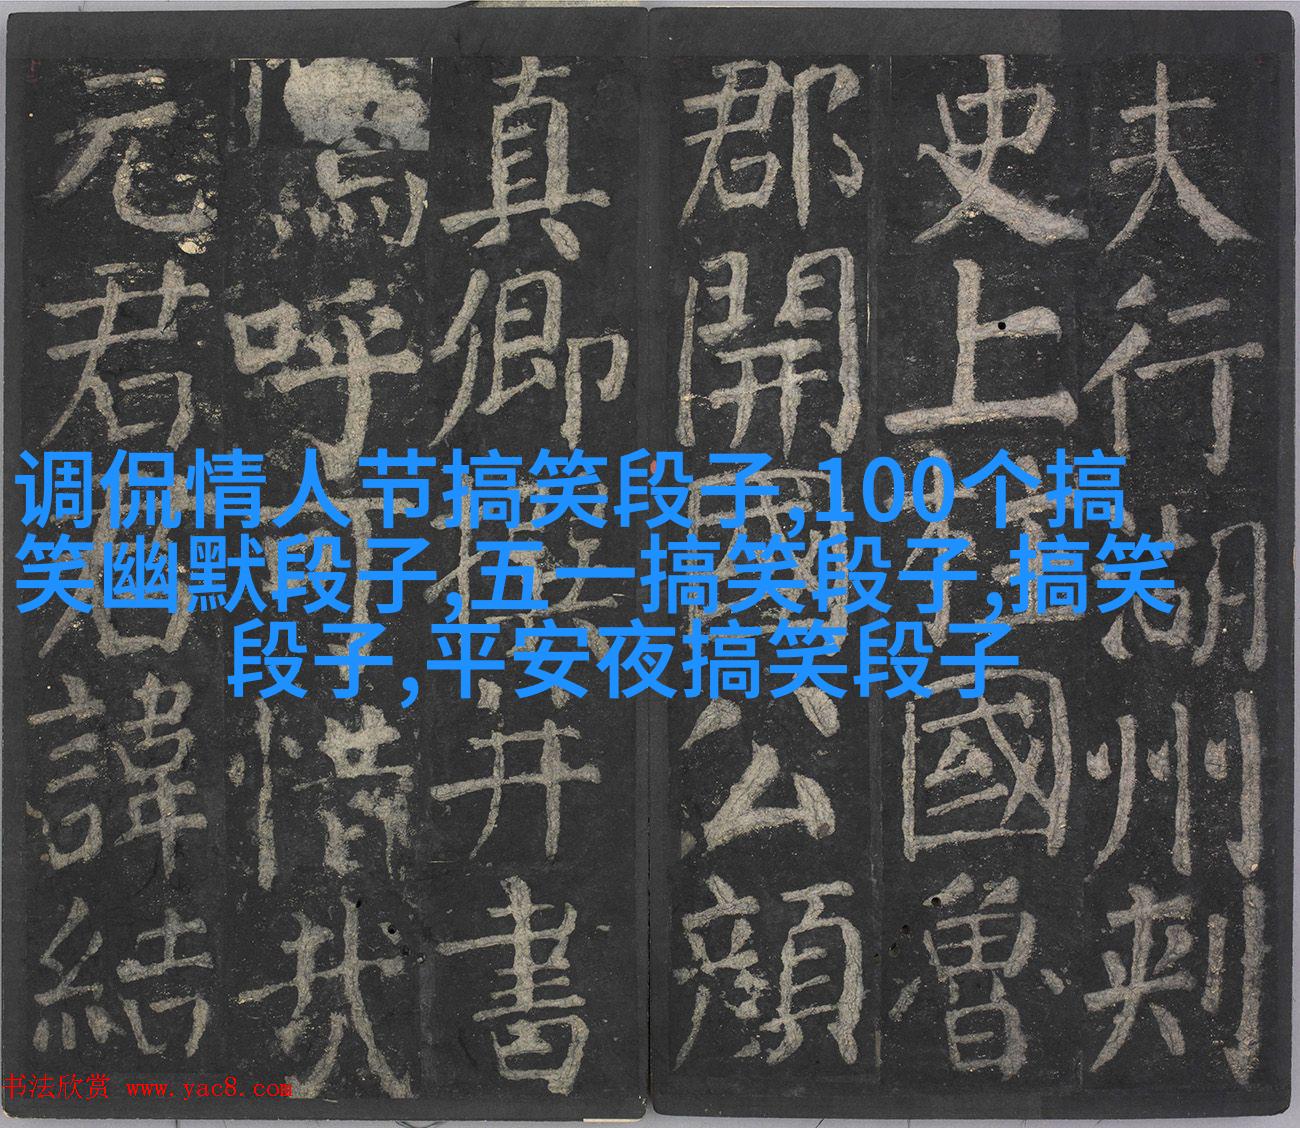 夫行湖州刾
史上柱國魯
郡開國公顏
真卿撰并書
嗚呼可惜哉
元君君諱結
调侃情人节搞笑段子,100个搞
笑幽默段子,五一搞笑段子,搞笑
段子,平安夜搞笑段子
书法欣赏 www.yac8.com